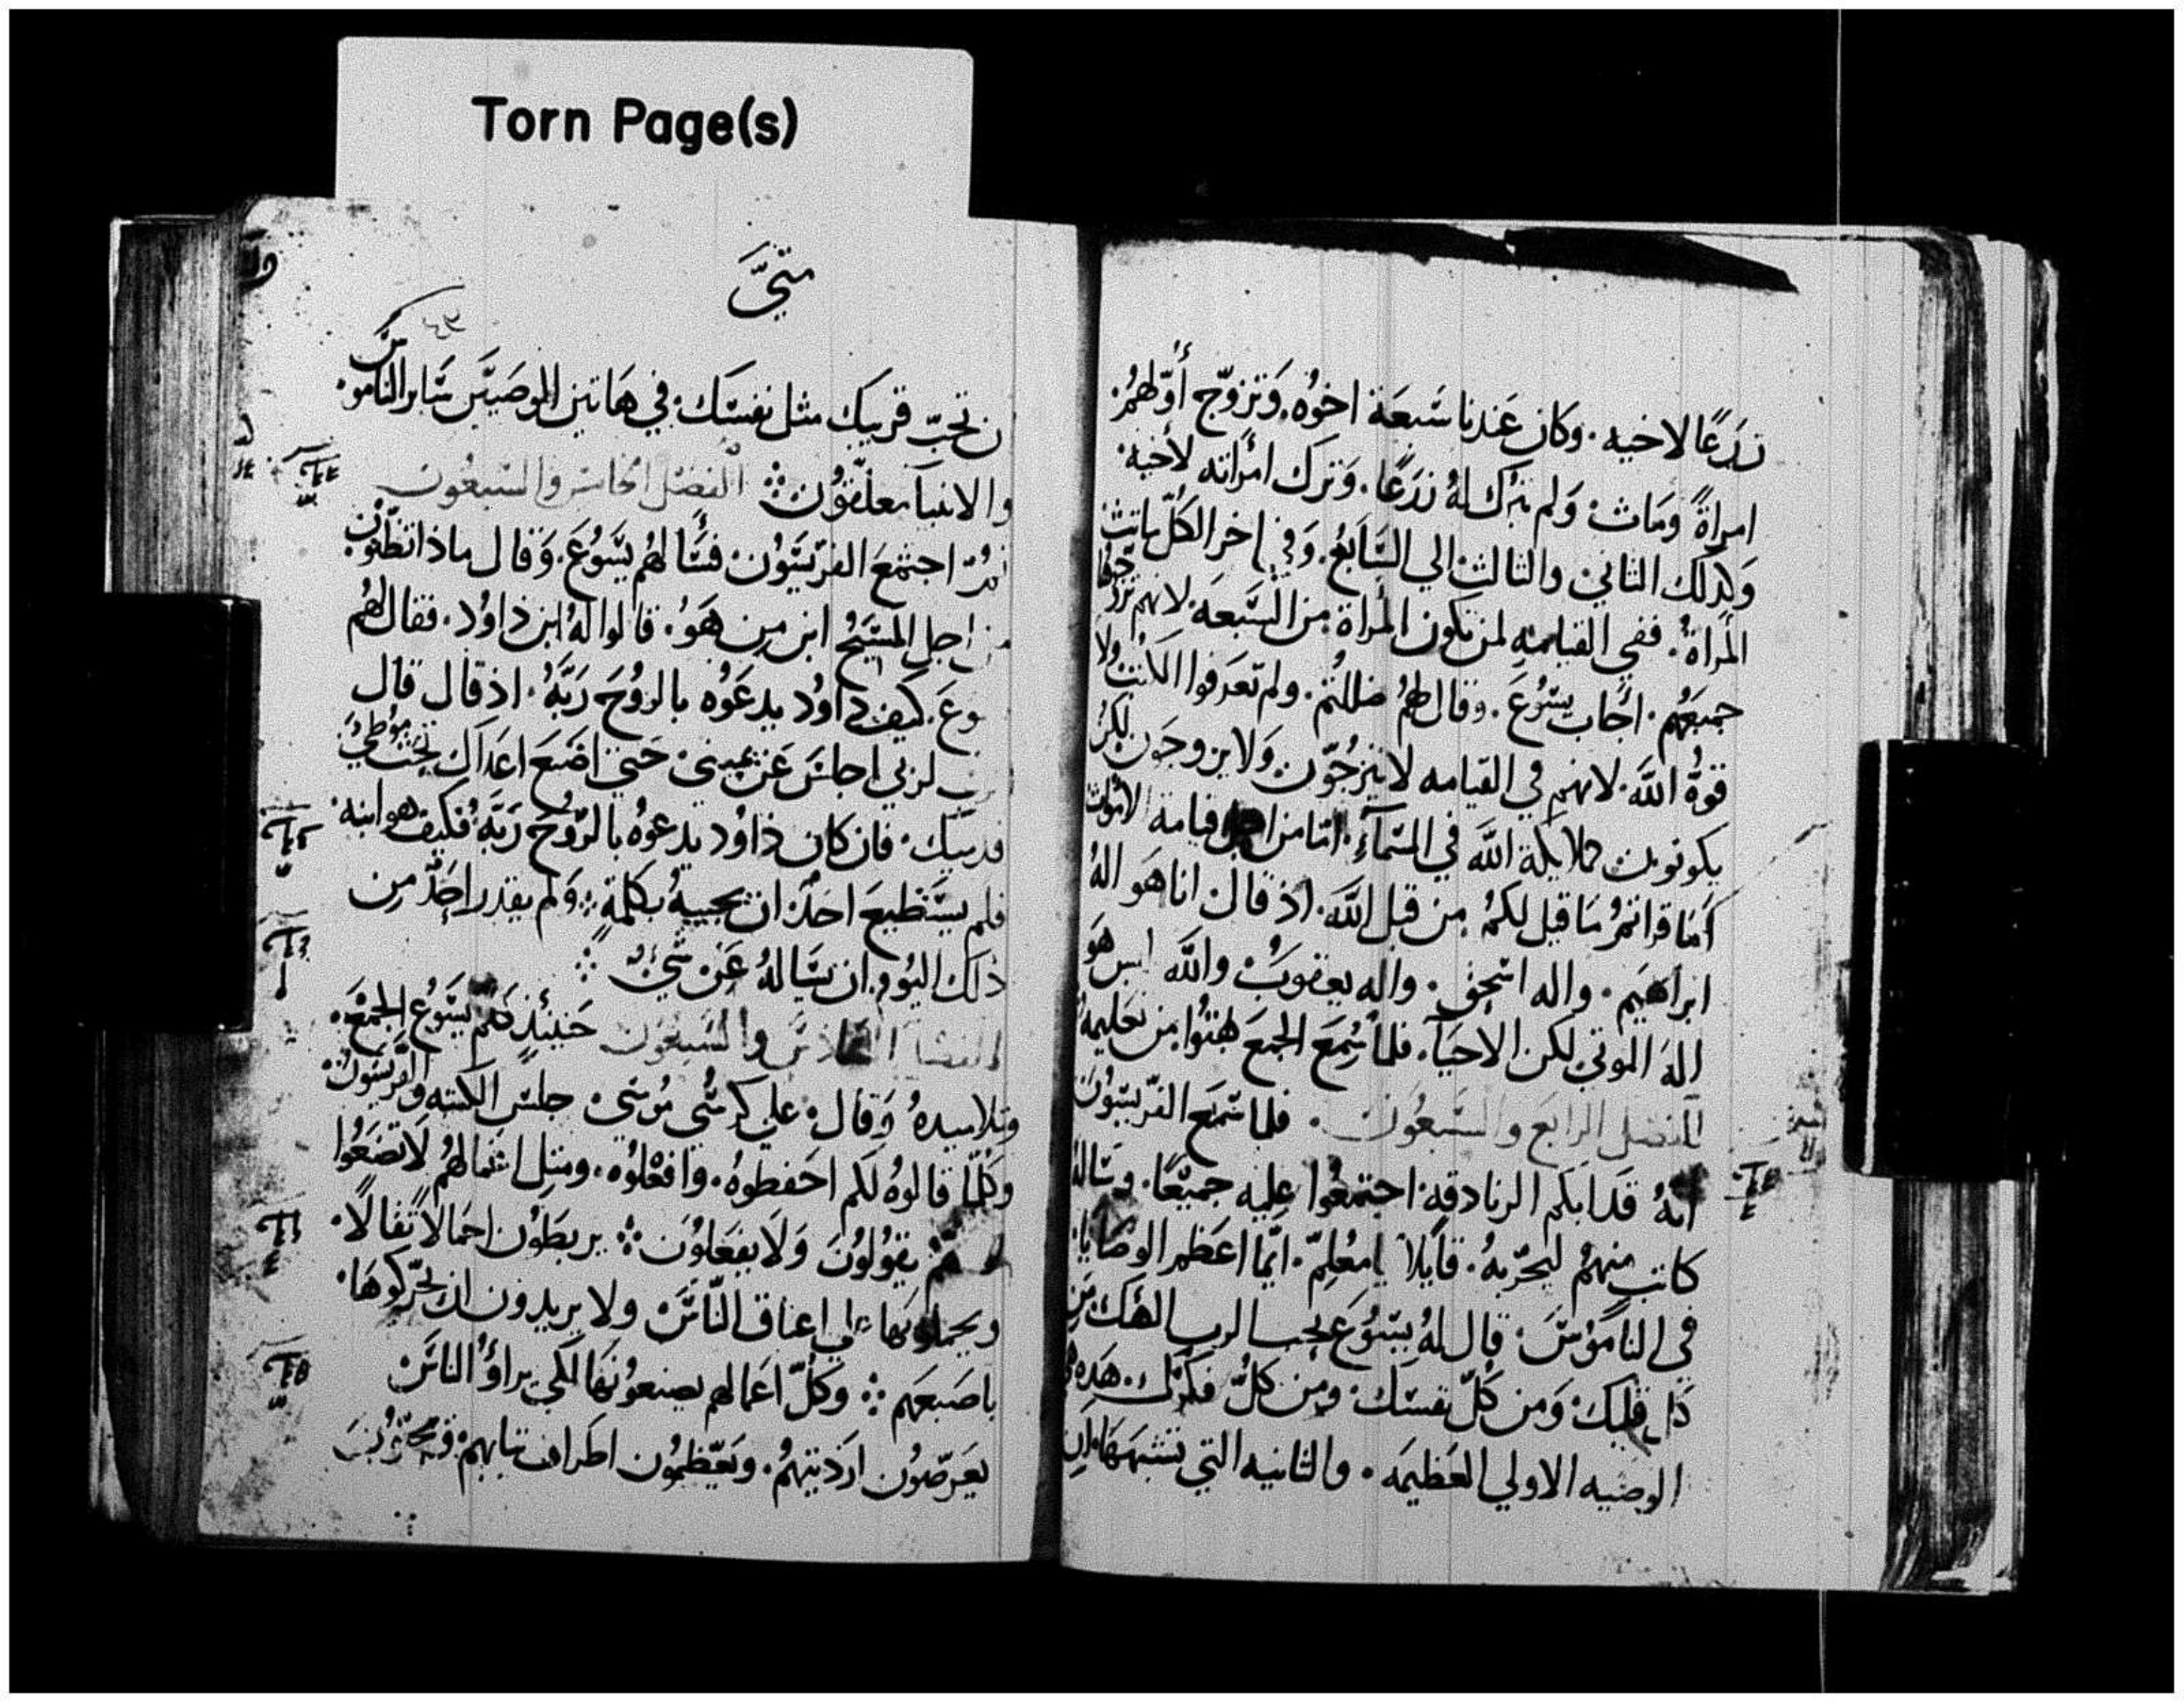 Torn Page(s)
زرعًا لاخيه. وكان عندنا سبعة اخوه. وتزوّج أوّلهم.
امراةً ومات ولم يترك لهُ زرعًا. وترك امراته لأخيه.
وكذلك الثاني والثالث الي السّابع. وفي اخر الكلّ ماتت
المراةُ. ففي القيامه لمن تكون المراة من السّبعه. لانهم تزوّجها
جميعهم. اجاب يسُوع. وقال لهمُ ضللتم. ولم تعرفوا الكتب ولا
قوةُ الله. لانهم في القيامه لا يتزوجّون ولا يزوجون لكن
يكونون كملايكة الله في السّمآءِ. امّا من اجل قيامة الاموات
أما قراتمُ ما قيل لكمُ من قبل الله. اذ قال انا هو اله
ابراهيم. واله اسحق. واله يعقوب والله ليس هو
اله الموتي لكن الاحيآ. فلما سُمع الجمع بهتُوا من تعليمهُ
الفصل الرابع والسّبعُون. فلما سمع الفرّيسيُون
انهُ قد ابكم الزنادقه اجتمعُوا عليه جميعًا. وساله
كاتب منهمُ ليجرّبهُ. قايلاً يا معُلمّ. ايّما اعظم الوصايا
في النامُوس. قال لهُ يسُوع تحب الرب الهك من
كل قلبك ومن كلّ نفسك ومن كلّ فكرك. هذه هي
الوصيه الاولي العظيمه. والثانيه التي تشبهها ان
متّيَ
ن تحبّ قريبك مثل نفسك. في هاتين الوصيتين ساير الناموس
والانبيا معلّقُون ⁘ الفصل الخامس والسّبعُون
ثمُ اجتمع الفرّيسيُون فسألهم يسُوع. وقال ماذا تظنّون
من اجل المسيحُ ابن من هو. قالوا لهُ ابن داوُد. فقال لهمُ
يسوع. كيف داوُد يدعوُه بالروُح ربّهُ. اذ قال قال
الرب لربي اجلس عن يميني حتي اضع اعداك تحت موُطي
قدميك. فان كان داوُد يدعوهُ بالرّوُح ربّهُ. فكيف هو ابنه.
فلم يستطيع احد ان يجيبهُ بكلمةٍ ⁘ ولم يقدر احدٌ من
ذلك اليوُم ان يساله عن شيءُ ⁘
الفصل السّادس والسّبعُون حينئذٍ كلّم يسُوع الجمع.
وتلاميدهُ وقال. علي كرسُي مُوسي جلس الكتبه والفرّيسيُون
وكلّما قالوهُ لكم احفظوهُ. وافعلوُه. ومثل اعمالهمُ لا تصنعُوا
لانهم يقوُلوُن ولا يفعلوُن ⁘ يربطوُن احمالاً ثقالاً.
ويحملونها علي اعناق النّاس ولا يريدون ان يحرّكوها.
باصبعهم ⁘ وكلّ اعمالهم يصنعوُنها لكي يراؤُ الناس
يعرّضوُن ارديتهمُ. ويعّظمُون اطراف ثيابهم. ويحبّوُن